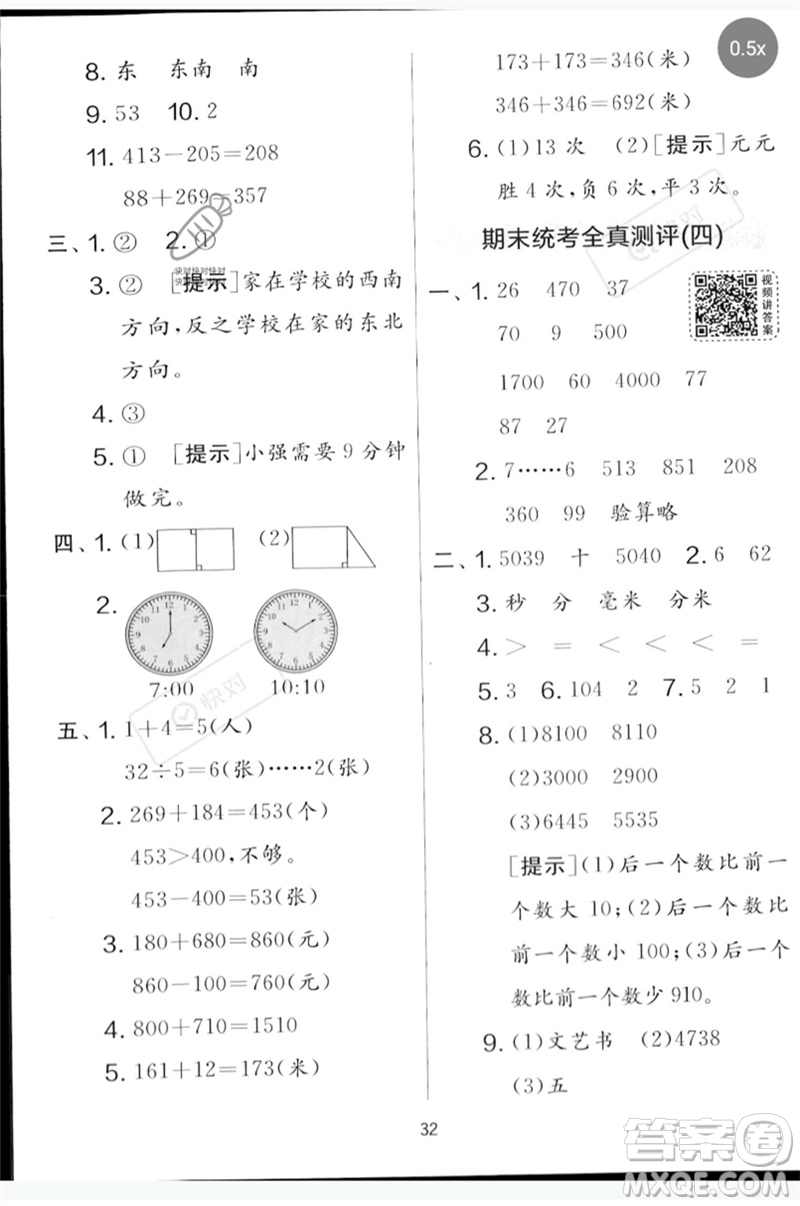 0.5x
8. 东 东南 南
9. 53 10. 2
11. 413-205=208
88+269=357
三、1. ② 2. ①
3. ② [提示]家在学校的西南
方向,反之学校在家的东北
方向。
4. ③
5. ① [提示]小强需要9分钟
做完。
四、1. (1) (2)
2.
7:00 10:10
五、1. 1+4=5(人)
32÷5=6(张)……2(张)
2. 269+184=453(个)
453>400,不够。
453-400=53(张)
3. 180+680=860(元)
860-100=760(元)
4. 800+710=1510
5. 161+12=173(米)
173+173=346(米)
346+346=692(米)
6. (1)13次 (2)[提示]元元
胜4次,负6次,平3次。
期末统考全真测评(四)
一、1. 26 470 37
70 9 500
1700 60 4000 77
87 27
视频讲答案
2. 7……6 513 851 208
360 99 验算略
二、1. 5039 十 5040 2. 6 62
3. 秒 分 毫米 分米
4. > = < < < =
5. 3 6. 104 2 7. 5 2 1
8. (1)8100 8110
(2)3000 2900
(3)6445 5535
[提示](1)后一个数比前一
个数大10;(2)后一个数比
前一个数小100;(3)后一个
数比前一个数少910。
9. (1)文艺书 (2)4738
(3)五
32
快对
答案圈
MXQE.COM